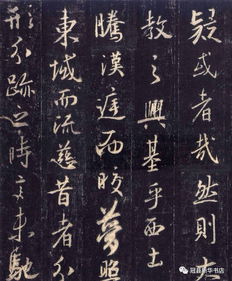 疑或者哉然則大
教之興基乎西土
騰漢庭而皎夢照
東域而流慈昔者分
形分跡之時言未馳
冠县新华书店